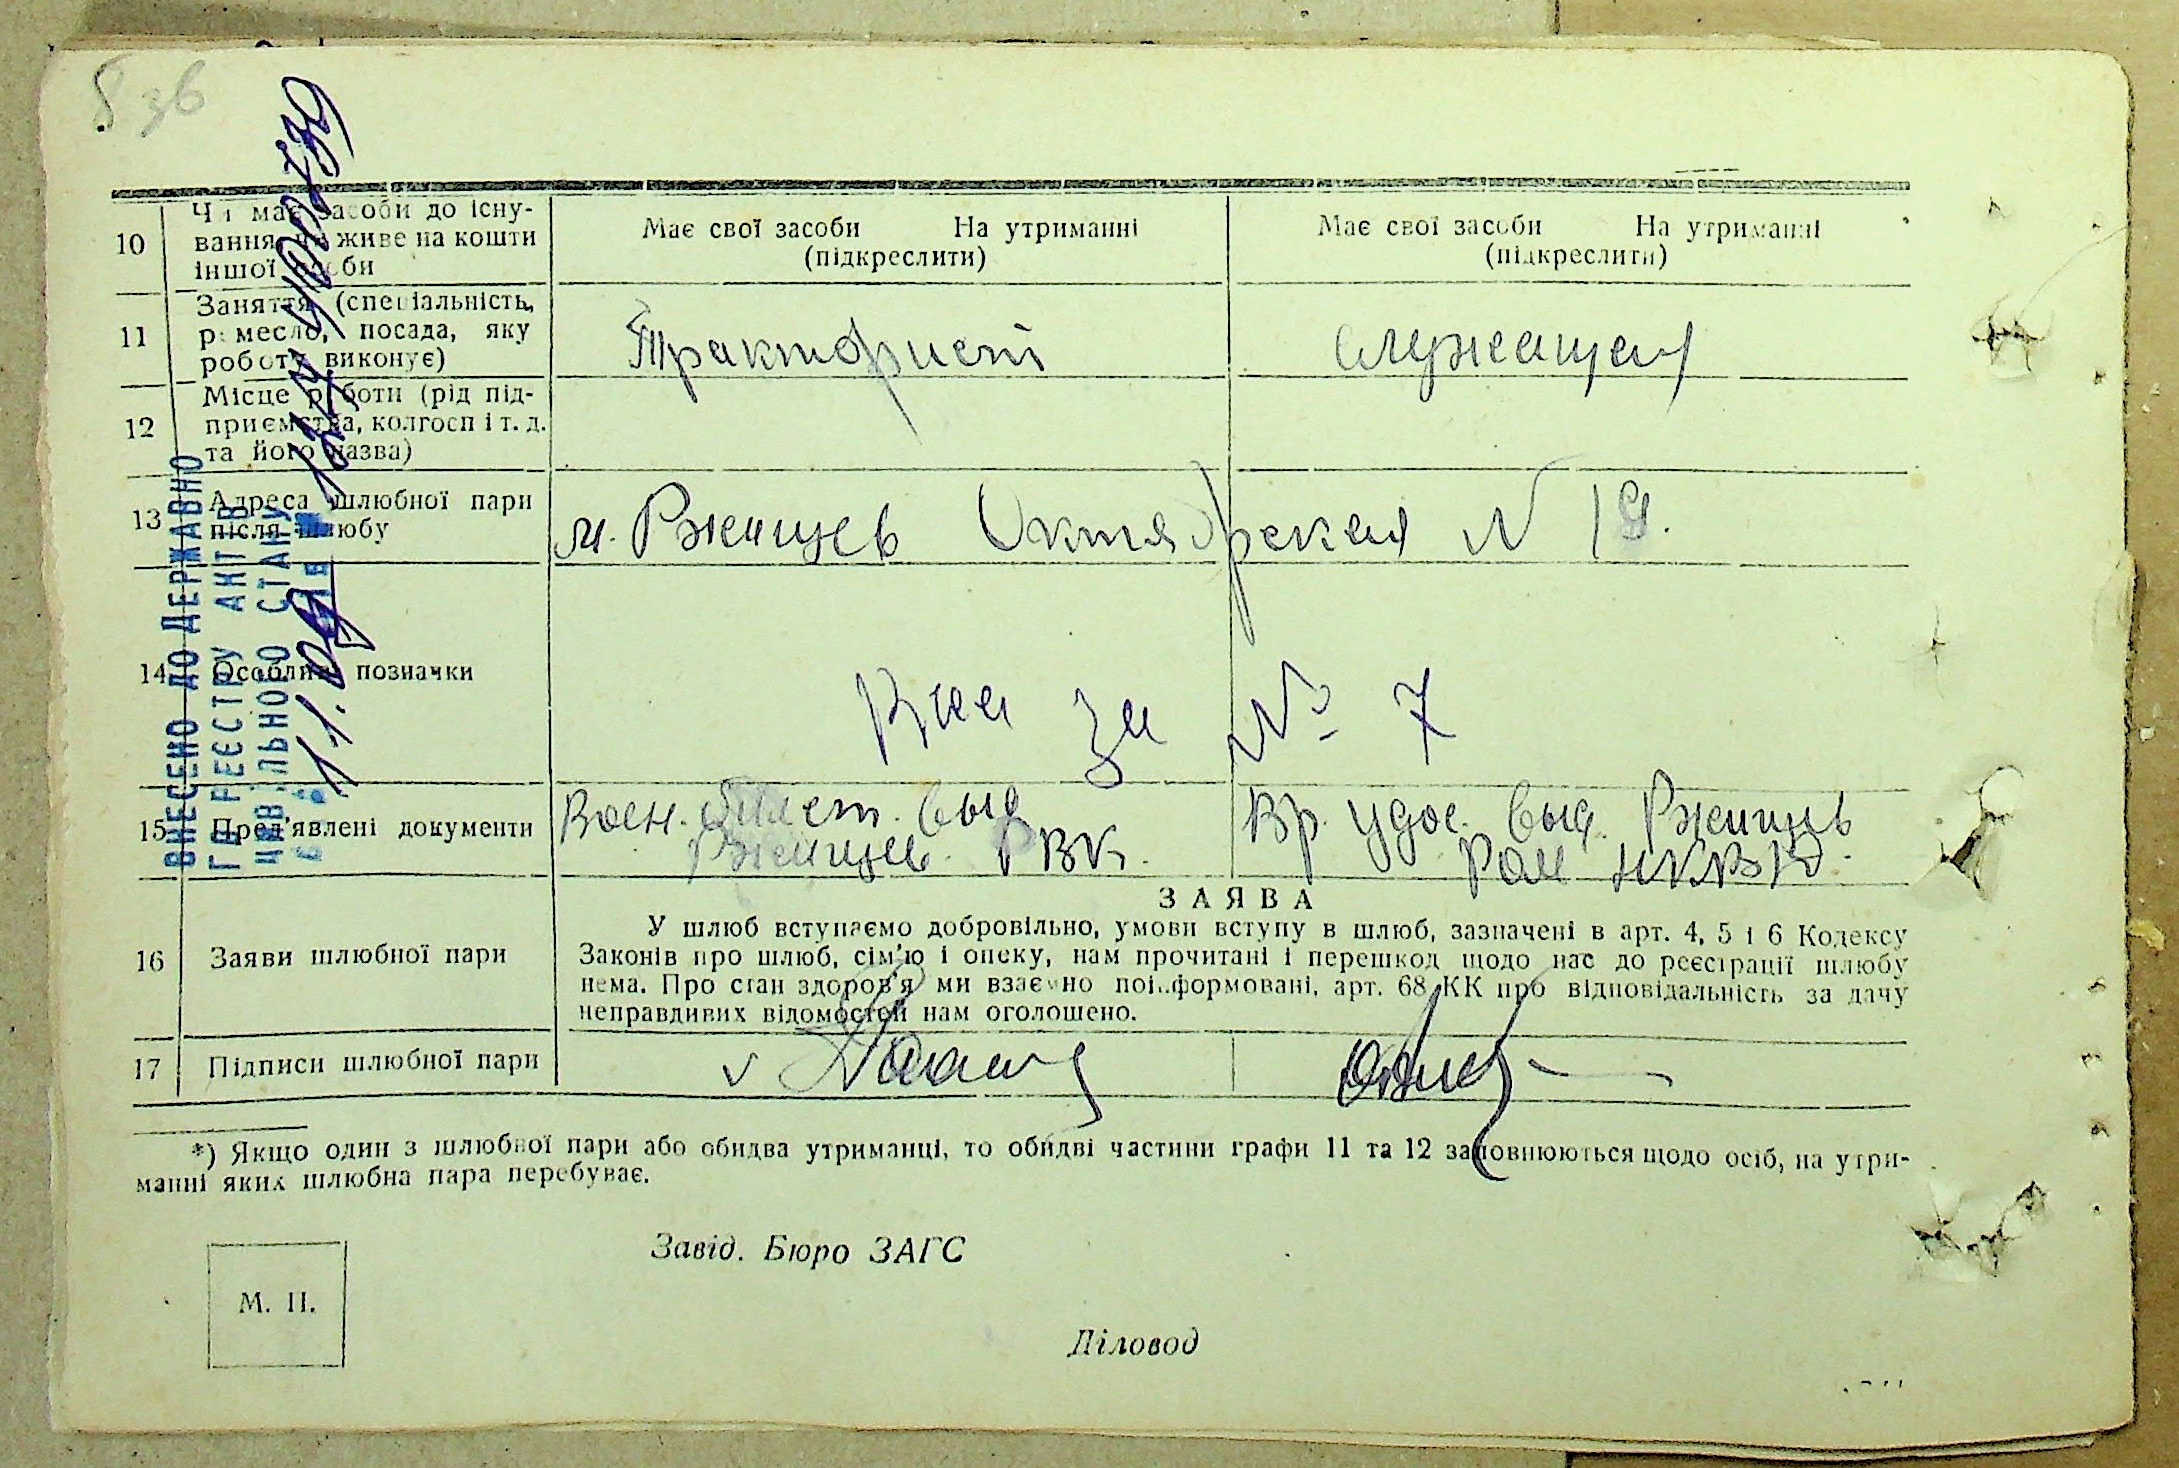 5 зв
10
Чи має засоби до існу-
вання чи живе на кошти
іншої особи
Має свої засоби На утриманні
(підкреслити)
Має свої засоби На утриманні
(підкреслити)
11
Заняття (спеціальність,
ремесло, посада, яку
роботу виконує)
Тракторист
служащая
12
Місце роботи (рід під-
приємства, колгосп і т. д.
та його назва)
13
Адреса шлюбної пари
після шлюбу
м. Ржищев Октябрская N 19.
14
Особливі позначки
за № 7
15
Пред'явлені документи
Воен. билет. выд
Ржищев. РВК.
Вр. удос. выд. Ржищев
Ром НКВД.
16
Заяви шлюбної пари
ЗАЯВА
У шлюб вступаємо добровільно, умови вступу в шлюб, зазначені в арт. 4, 5 і 6 Кодексу
Законів про шлюб, сім'ю і опеку, нам прочитані і перешкод щодо нас до реєстрації шлюбу
нема. Про стан здоров'я ми взаємно поінформовані, арт. 68 КК про відповідальність за дачу
неправдивих відомостей нам оголошено.
17
Підписи шлюбної пари
*) Якщо один з шлюбної пари або обидва утриманці, то обидві частини графи 11 та 12 заповнюються щодо осіб, на утри-
манні яких шлюбна пара перебуває.
Завід. Бюро ЗАГС
М. П.
Діловод
ВНЕСЕНО ДО ДЕРЖАВНО
ГО РЕЄСТРУ АКТІВ
ЦИВІЛЬНОГО СТАНУ